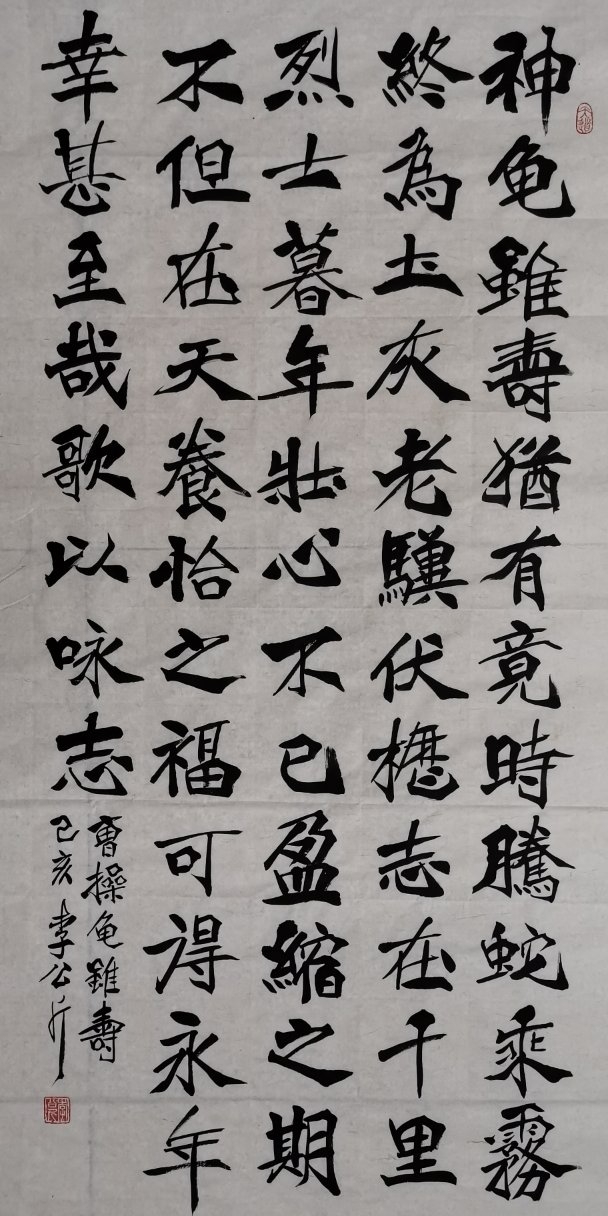 神龟雖壽猶有竟時騰蛇乘霧
終為土灰老驥伏櫪志在千里
烈士暮年壯心不已盈縮之期
不但在天養怡之福可得永年
幸甚至哉歌以咏志
曹操龟雖壽
己亥李公